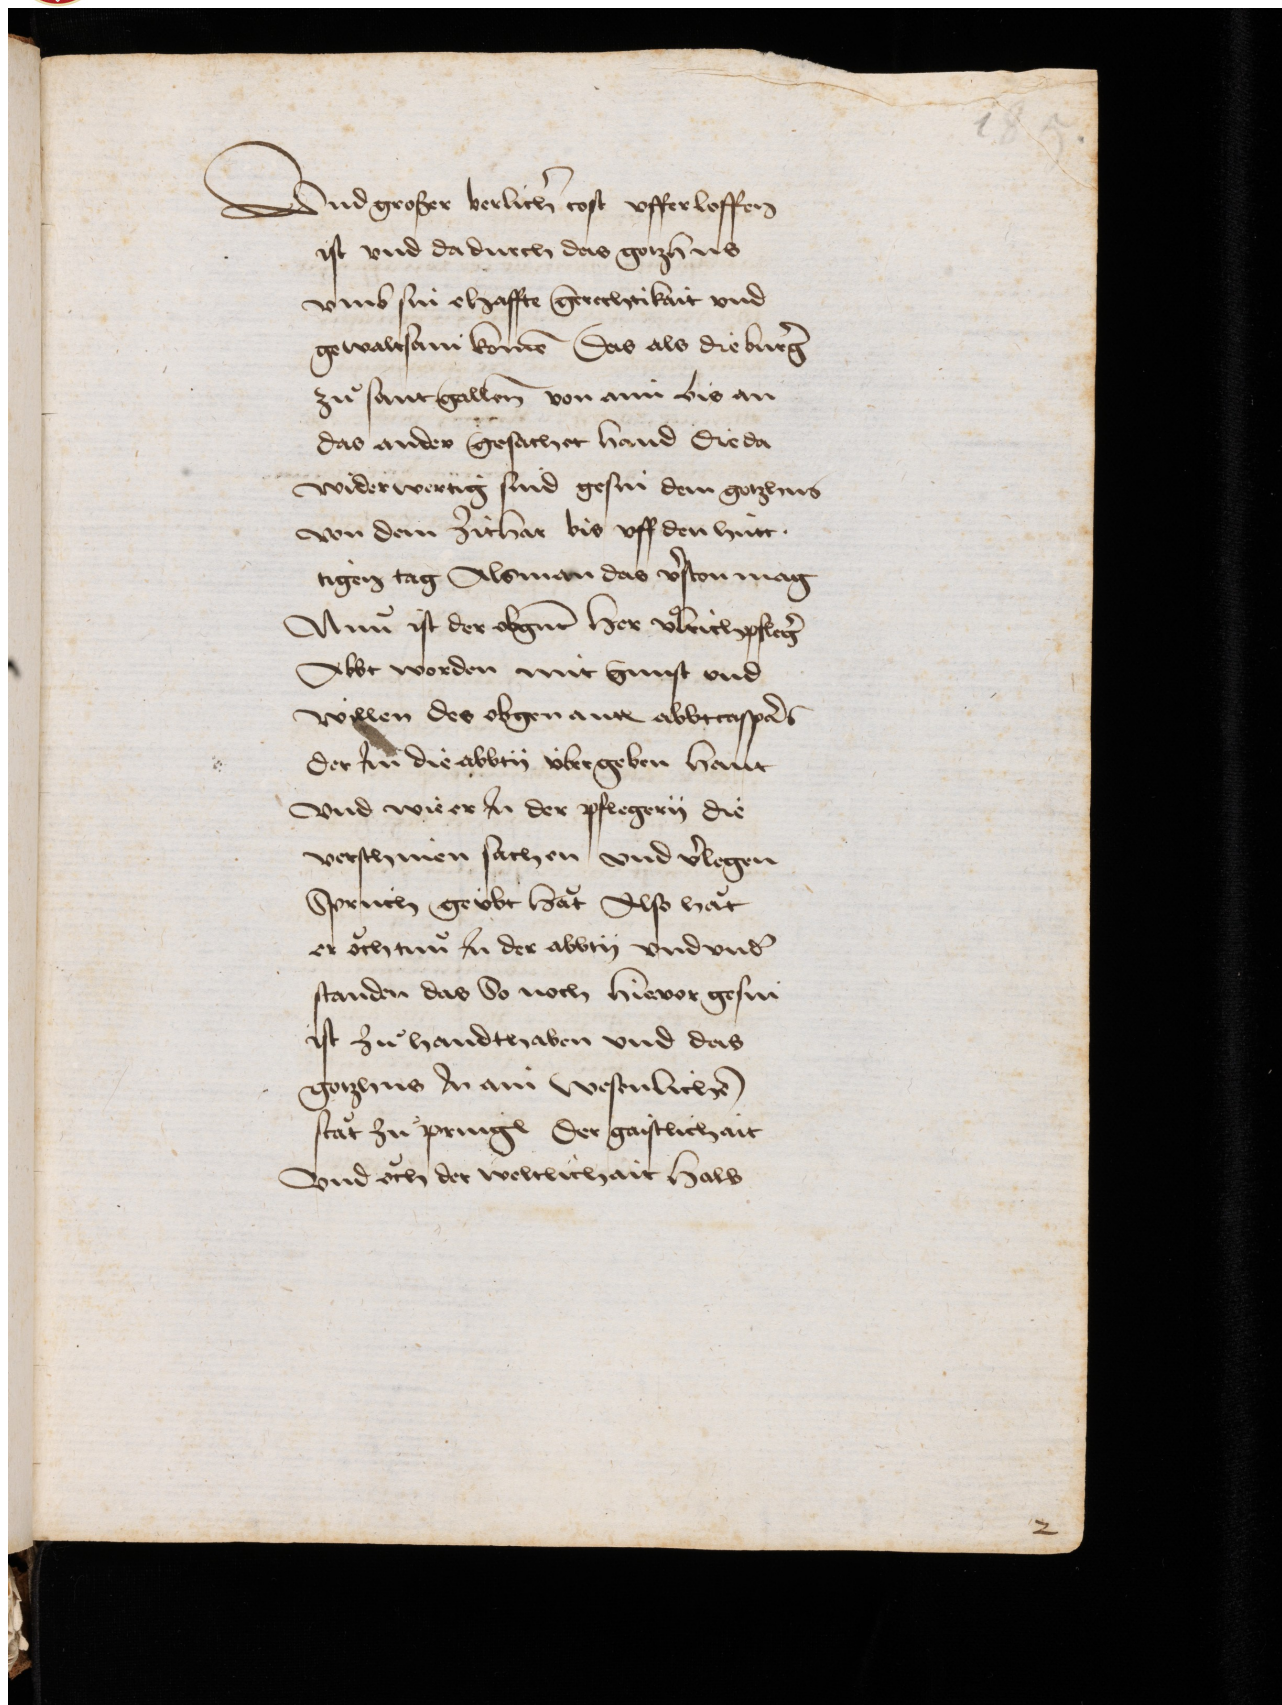 185.
Vnd großer kerlicher cost vfferloffen
ist vnd da durch das gotzhus
vmb sin ehaffte gerechtikait vnd
gewaltsami komē Das als die burgr̄
zů sant gallen von aim bis an
das ander gesachet hand die da
widerwertig sind gesin dem gotzhus
von dem Zithar bis vff den hütt
tigen tag Als man das v̄ston mag
Nnů ist der obgnt̄ her vͦlrich pflegr̄
Abbt worden mit gunst vnd
willen des obgenantē abbt caspars
der Im die abbtÿ übergeben haut
Vnd wie er In der pflegerÿ die
verschinen sachen vnd v̄legen
Sprüch geübt hăt Also hăt
er ŏch tnů In der abbtÿ vnd vndr̄
standen das So noch hievor gesin
ist zů handthaben vnd das
gotzhus In ain wesenlichē
stăt zů pringē der gaistlichait
Vnd ŏch der weltlichait halb
2